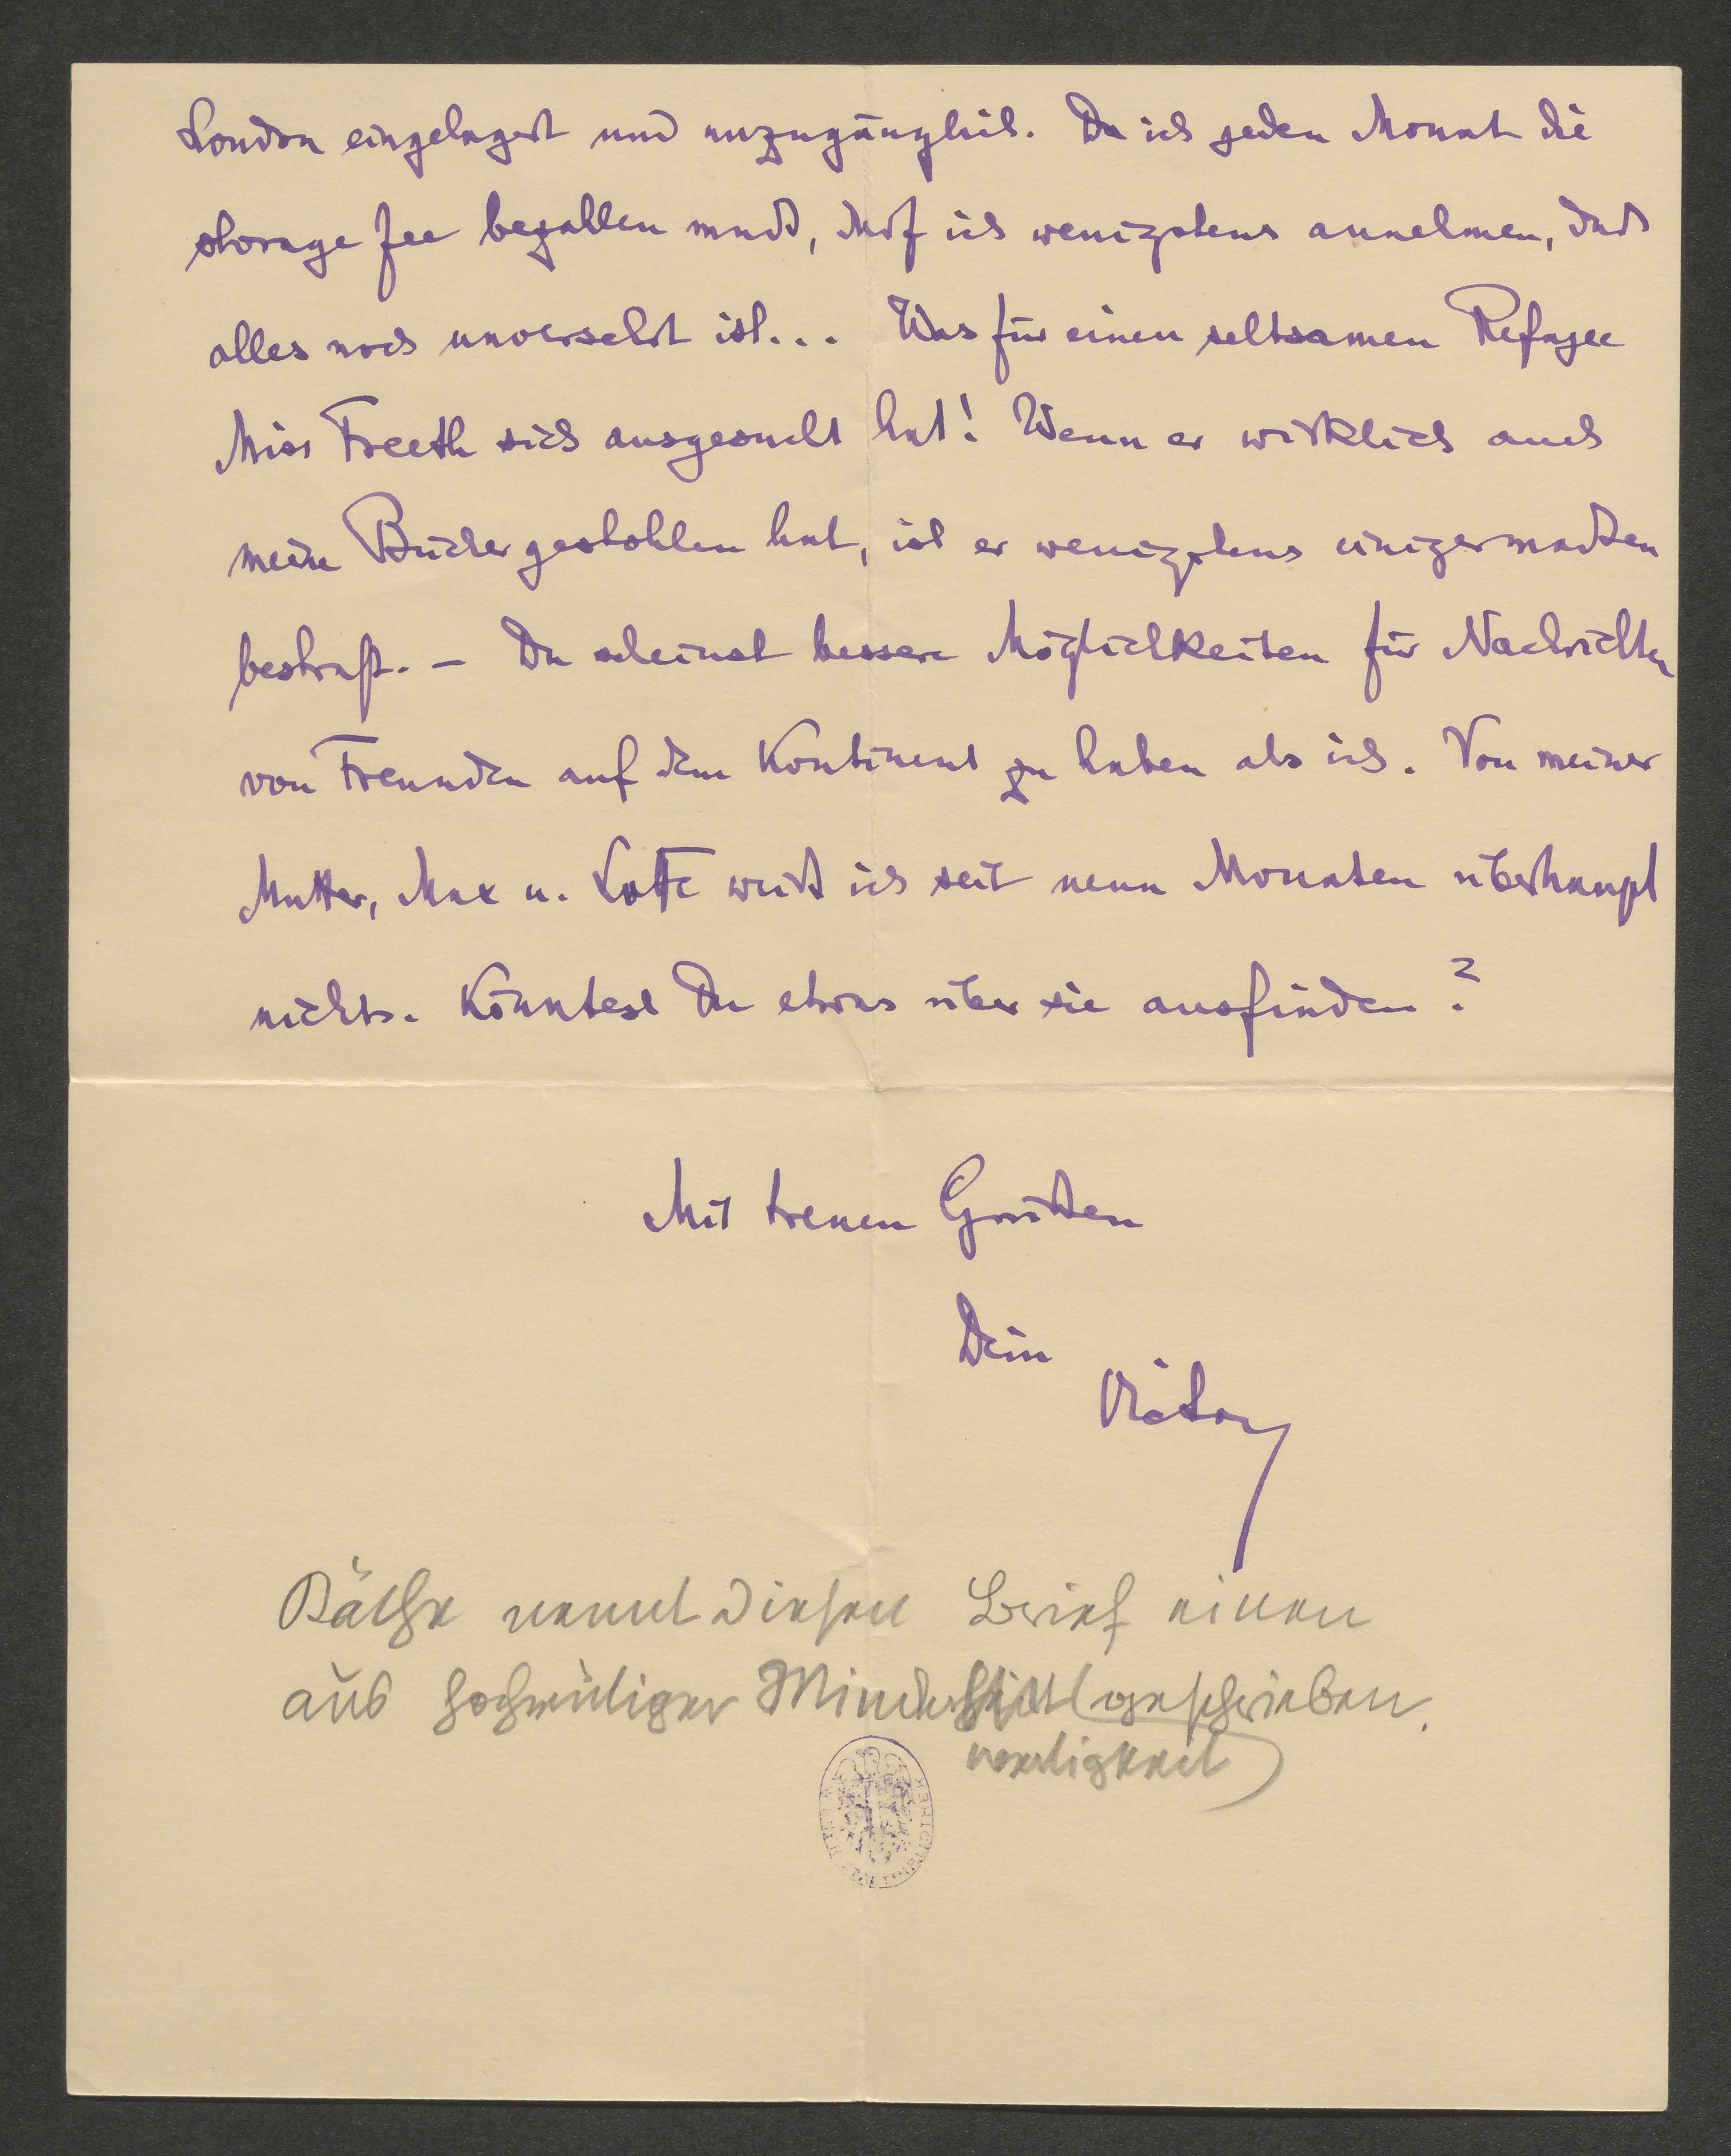 London eingelagert und unzugänglich. Da ich jeden Monat die
storage fee bezahlen muß, darf ich wenigstens annehmen, daß
alles noch unversehrt ist... Was für einen seltsamen Refugee
Miss Freeth sich ausgesucht hat! Wenn er wirklich auch
meine Bücher gestohlen hat, ist er wenigstens einigermaßen
bestraft. – Du scheinst bessere Möglichkeiten für Nachrichten
von Freunden auf dem Kontinent zu haben als ich. Von meiner
Mutter, Max u. Lotte weiß ich seit neun Monaten überhaupt
nichts. Könntest Du etwas über sie ausfinden?
Mit treuen Grüßen
Dein
Viktor
Käthe nennt diesen Brief einen
aus hochmütiger Minder geschrieben.
wertigkeit